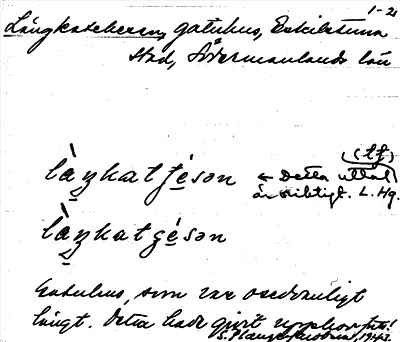 1-21
Långkatekesen, gatuhus, Eskilstuna
stad, Södermanlands län
(tʃ)
làŋkatʃésən ← Detta uttal
är riktigt. L. Hg.
làŋkatgésən
Gatuhus, som var osedvanligt
långt. Detta hade givit upphov
S. 1943.